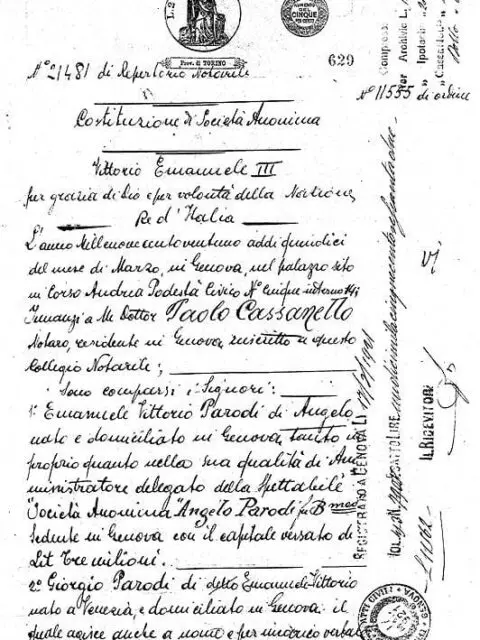 L. 2
AUMENTO
DEL
CINQUE
Prov. di TORINO
629
N° 21481 di Repertorio Notarile
N° 11555 di ordine
Costituzione di Società Anonima
Vittorio Emanuele III
per grazia di Dio e per volontà della Nazione
Re d'Italia
L'anno Millenovecentoventuno addì quindici
del mese di Marzo, in Genova, nel palazzo sito
in Corso Andrea Podestà Civico N° Cinque interno 14;
Innanzi a Me Dottor Paolo Cassanello
Notaro, residente in Genova, inscritto a questo
Collegio Notarile;
Sono comparsi i Signori:
1° Emanuele Vittorio Parodi di Angelo
nato e domiciliato in Genova, tanto in
proprio quanto nella sua qualità di Am
ministratore delegato della Spettabile
"Società Anonima" Angelo Parodi fu Bmeo
sedente in Genova con il capitale versato di
Lit Tre milioni.
2° Giorgio Parodi di detto Emanuele Vittorio
nato a Venezia, e domiciliato in Genova: il
quale agisce anche a nome e per incarico verbale
Compress.
per Archivio L.
" Ipotario "
" Cassa
REGISTRATO A GENOVA LI
IL RICEVITORE
ATTI CIVILI
GENOVA